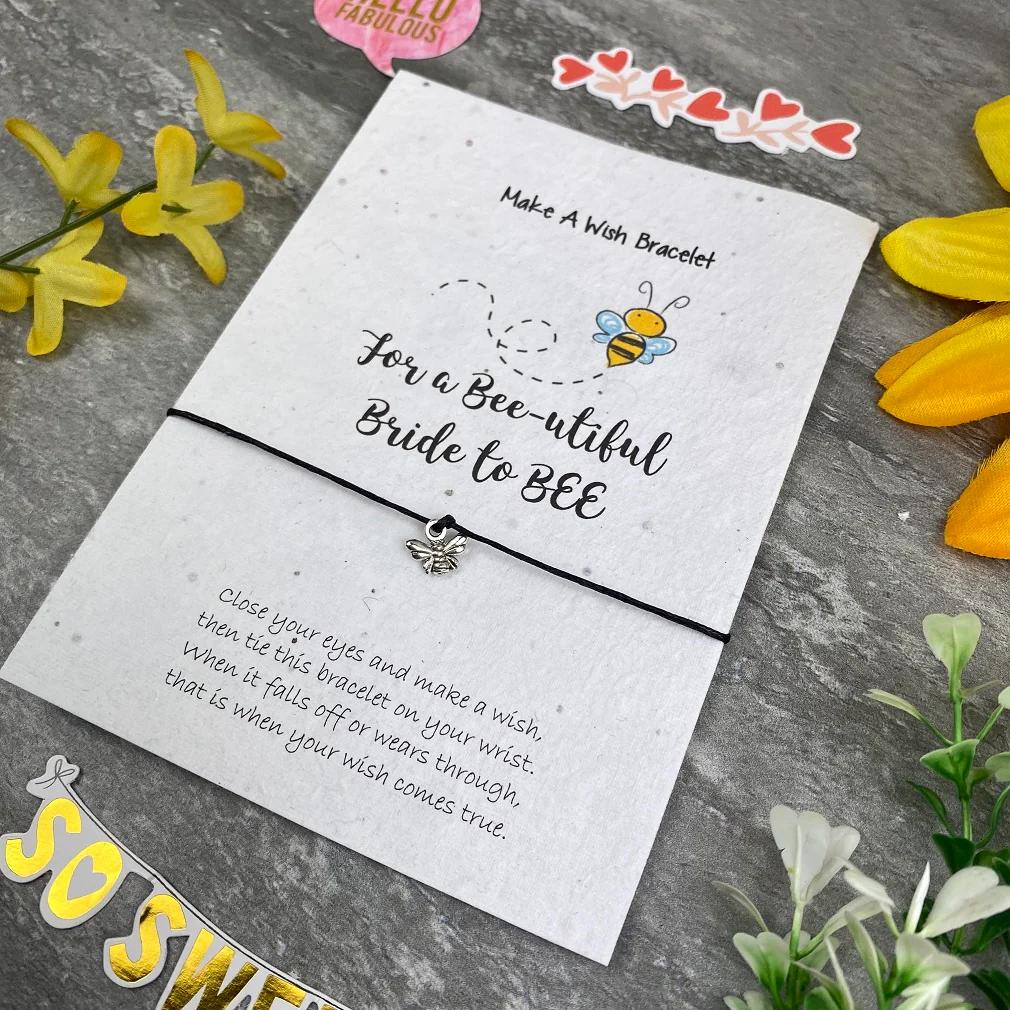 FABULOUS
Make A Wish Bracelet
For a Bee-utiful
Bride to BEE
Close your eyes and make a wish,
then tie this bracelet on your wrist.
When it falls off or wears through,
that is when your wish comes true.
SO SWE